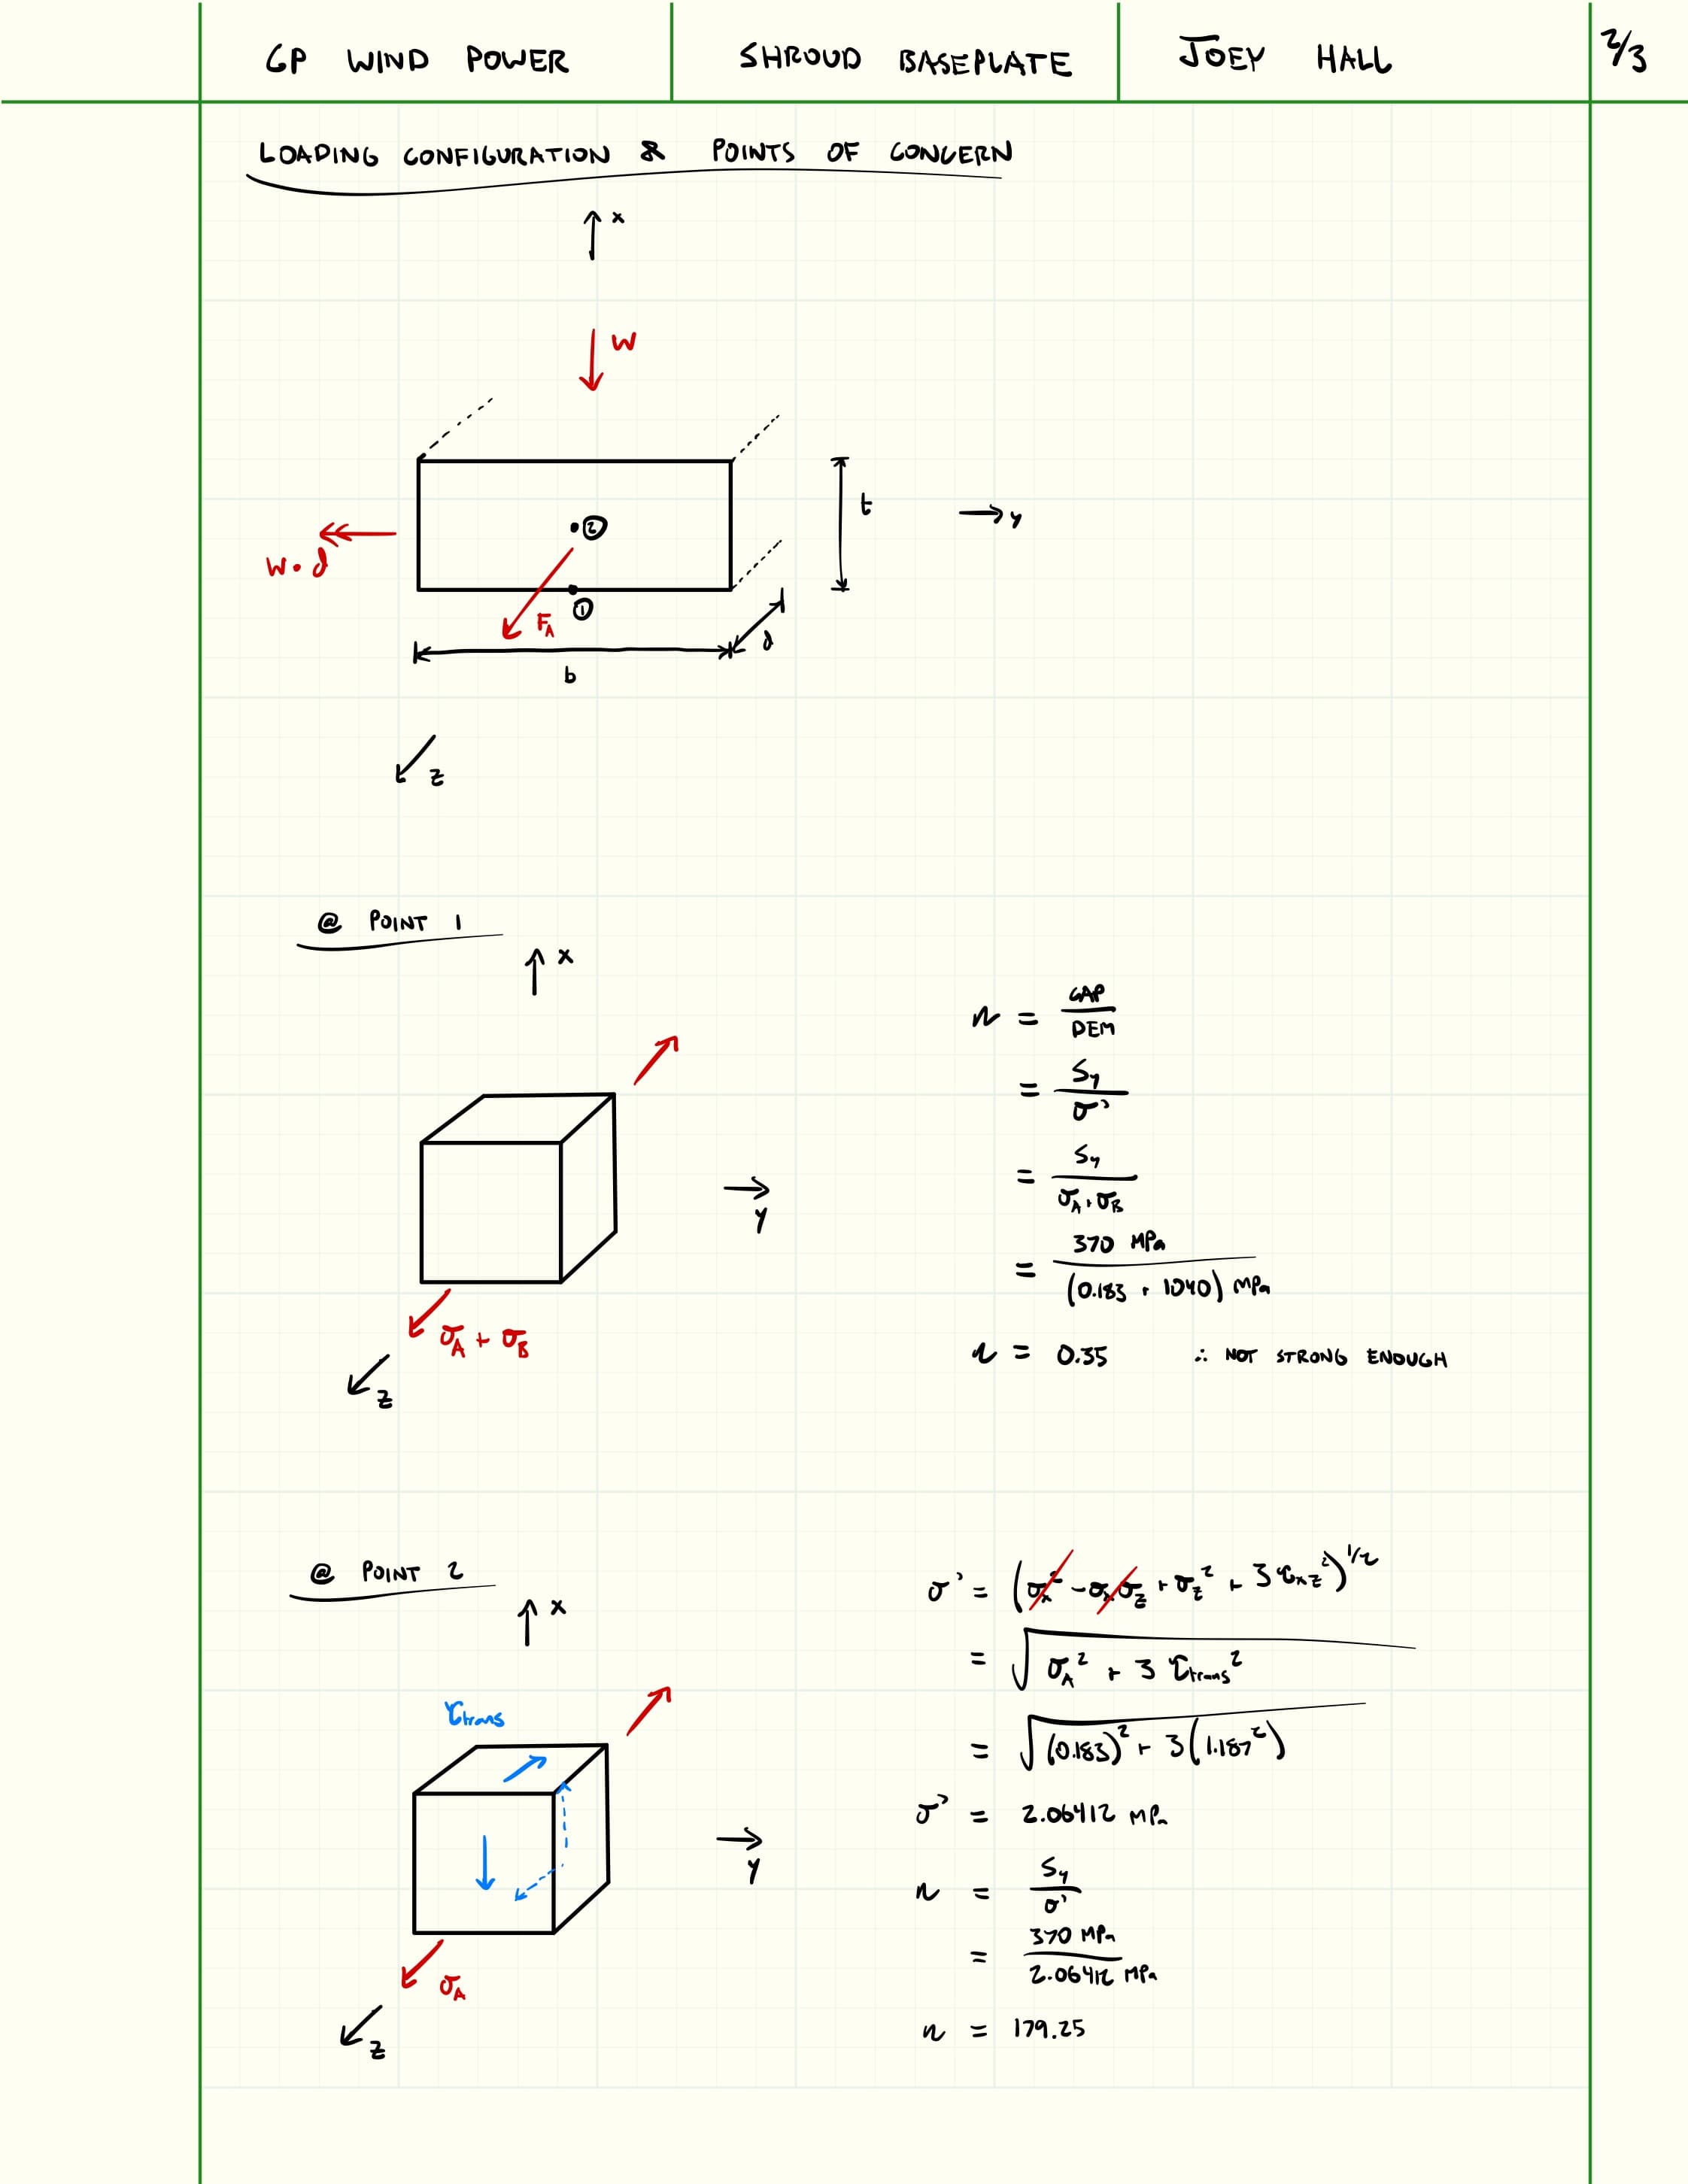 CP WIND POWER
SHROUD BASEPLATE
JOEY HALL
2/3
LOADING CONFIGURATION & POINTS OF CONCERN
x
W
②
t
y
W·d
①
F_A
d
b
z
@ POINT 1
x
n = CAP / DEM
= Sy / σ'
y
= Sy / (σ_A + σ_B)
= 370 MPa / (0.183 + 1040) MPa
σ_A + σ_B
n = 0.35 ∴ NOT STRONG ENOUGH
z
@ POINT 2
x
σ' = (σ_x² - σ_xσ_z + σ_z² + 3τ_xz²)^1/2
= √(σ_A² + 3τ_trans²)
τ_trans
= √((0.183)² + 3(1.187²))
σ' = 2.06412 MPa
y
n = Sy / σ'
= 370 MPa / 2.06412 MPa
σ_A
n = 179.25
z